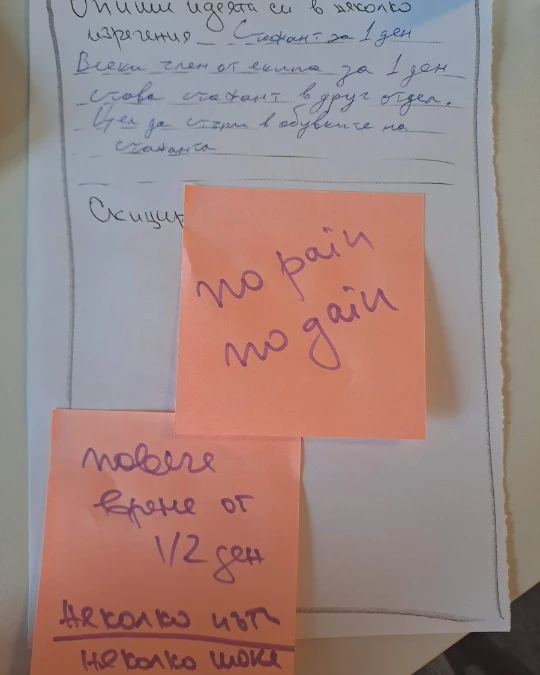 Опиши идеята си в няколко
изречения Стажант за 1 ден
Всеки член от екипа за 1 ден
става стажант в друг отдел.
Цел да стъпи в обувките на
стажанта
Скицир
no pain
no gain
повече
време от
1/2 ден
няколко пъти
няколко